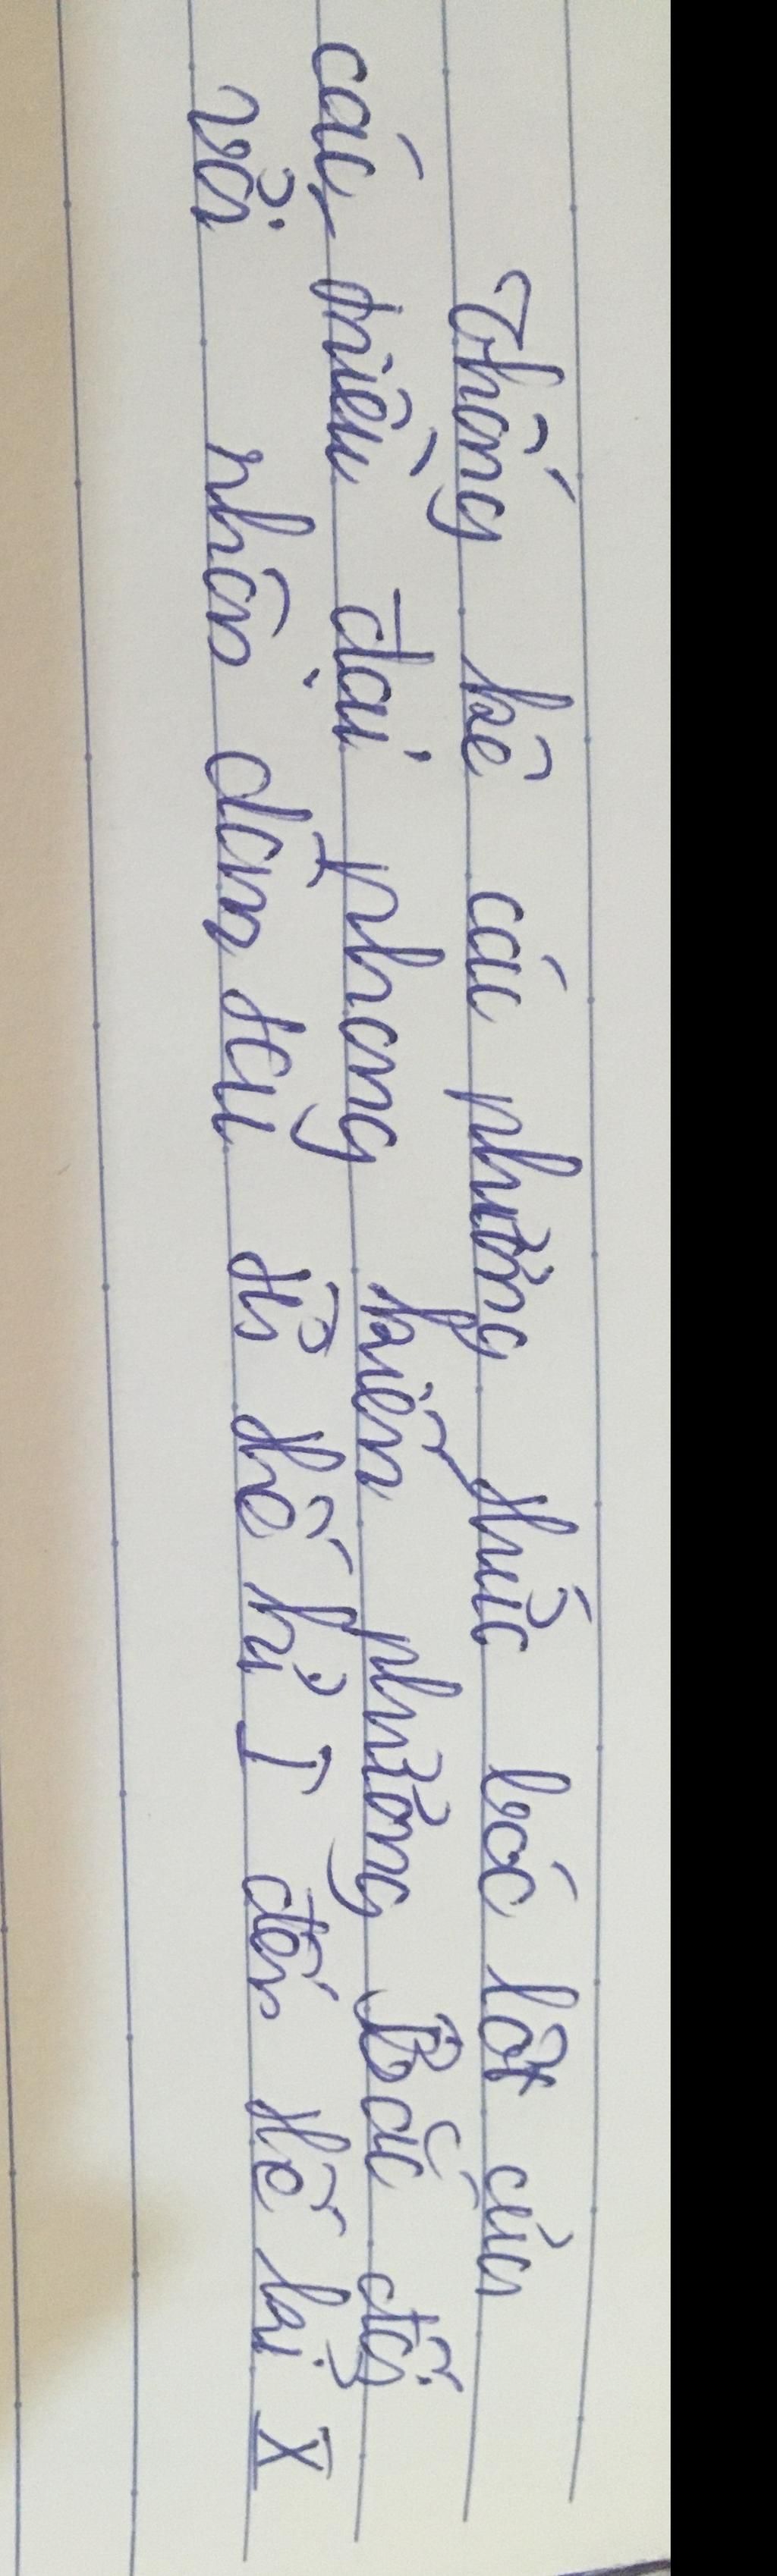 Thống kê các phương thức bóc lột của
các triều đại phong kiến phương Bắc đối
với nhân dân ta từ thế kỉ I đến thế kỉ X